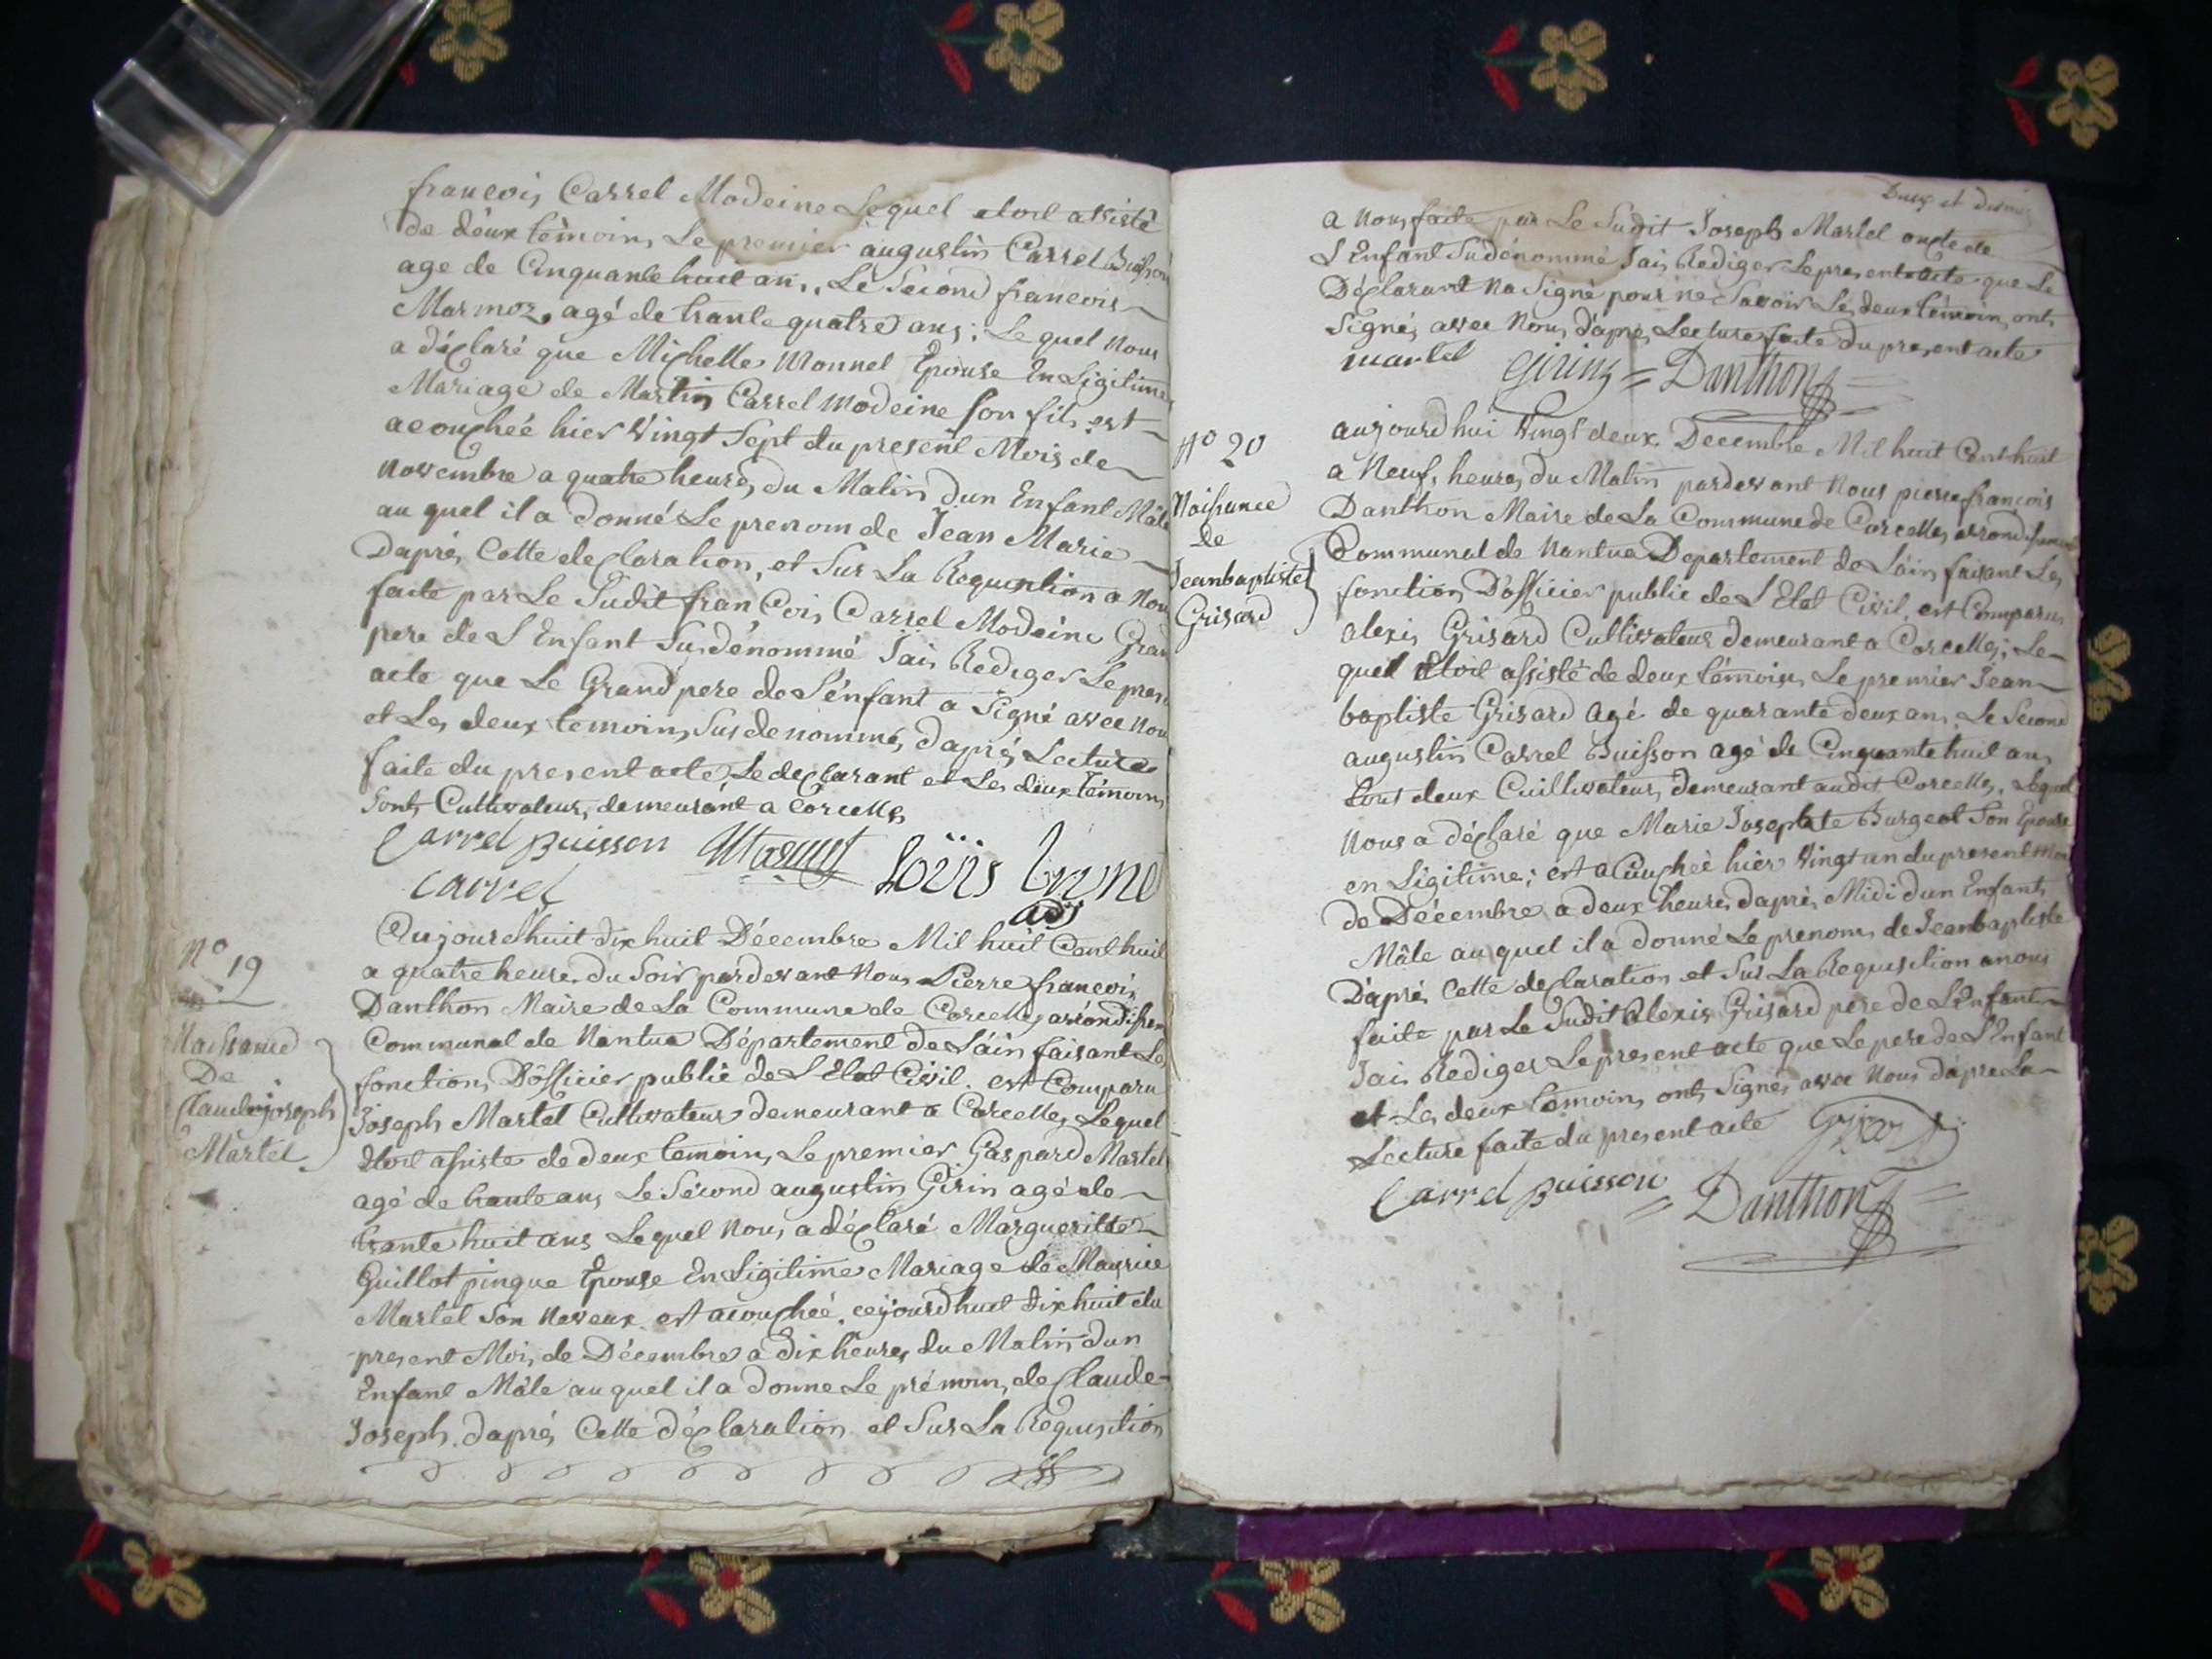 francois Carrel Modeine Lequel etoit assisté
de deux témoins Le premier augustin Carrel Buisson
age de Cinquante huit ans, Le Second francois
Marmoz, agé de trante quatre ans; Le quel nous
a déclaré que Michelle Monnet Epouse En Ligitime
Mariage de Martin Carrel Modeine son fils est
acouchéé hier Vingt Sept du present Mois de
Novembre a quatre heures du Matin dun Enfant Mâle
au quel il a donné Le prenom de Jean Marie
Daprés Cette declaration, et Sur La Requisition a Nous
faite par Le Sudit francois Carrel Modeine Grand
pere de L'Enfant Susdénommé J'ais Rediger Le present
acte que Le Grand pere de L'énfant a Signé avec Nous
et Les deux temoins Susdenommés daprés Lecture
faite du present acte Le declarant et Les deux témoins
Sont Cultivateurs demeurant a Corcelles
Carrel Buisson
Carrel
N° 19
Naissance
De
Claude joseph
Martel
Aujourdhuit dix huit Décembre Mil huit Cent huit
a quatre heures du Soir pardevant Nous Pierre francois
Danthon Maire de La Commune de Corcelles arrondissem
Communal de Nantua Département de Láin faisant Les
fonctions Dófficier public de L'Etat Civil. est Comparu
Joseph Martel Cultivateur demeurant a Corcelles Lequel
Etoit assisté de deux temoins Le premier Gaspard Martel
agé de trante ans Le Sécond augustin Girin agé de
trante huit ans Lequel Nous a déclaré Margueritte
Guillot pingue Epouse En Ligitime Mariage de Maurice
Martel Son Neveux est acouchéé cejourdhuit dix huit du
present Mois de Décembre a dix heures du Matin dun
Enfant Mâle auquel il a donne Le prénom de Claude-
Joseph. daprés Cette déclaration et Sur La Requisition
a Nous faite par Le Sudit Joseph Martel oncle de
L'Enfant Sudénommé J'ais Rediger Le present acte que Le
Déclarant Na Signé pour ne Savoir Les deux témoins ont
Signés avec Nous d'aprés Lecture faite du present acte
martel Girin = Danthon
N° 20
Naissance
de
Jeanbaptiste
Grisard
aujourdhui Vingt deux Decembre Mil huit Cent huit
a Neuf heures du Matin pardevant Nous pierre francois
Danthon Maire de La Commune de Corcelles arrondissement
Communal de Nantua Departement de Láin faisant Les
fonction Dófficier public de L'Etat Civil, est Comparus
alexis Grisard Cultivateur demeurant a Corcelles; Le-
quel Etoit assisté de deux témoins Le premier Jean-
baptiste Grisard agé de quarante deux ans Le Second
augustin Carrel Buisson agé de Cinquante huit ans
tous deux Cuiltivateurs demeurant audit Corcelles, Lequel
Nous a déclaré que Marie Josephte Burgeot Son Epouse
en Ligitime; est acouchéé hier Vingt un du present Mois
de Décembre a deux heures daprés Midi d'un Enfant
Mâle au quel il a donné Le prenom de Jeanbaptiste
D'aprés Cette declaration et Sur La Requisition anous
faite par Le Sudit Alexis Grisard pere de L'Enfant
J'ais Rediger Le present acte que Le pere de L'Enfant
et Les deux témoins ont Signés avec Nous d'apre La
Lecture faite du present acte
Carrel Buisson = Danthon =